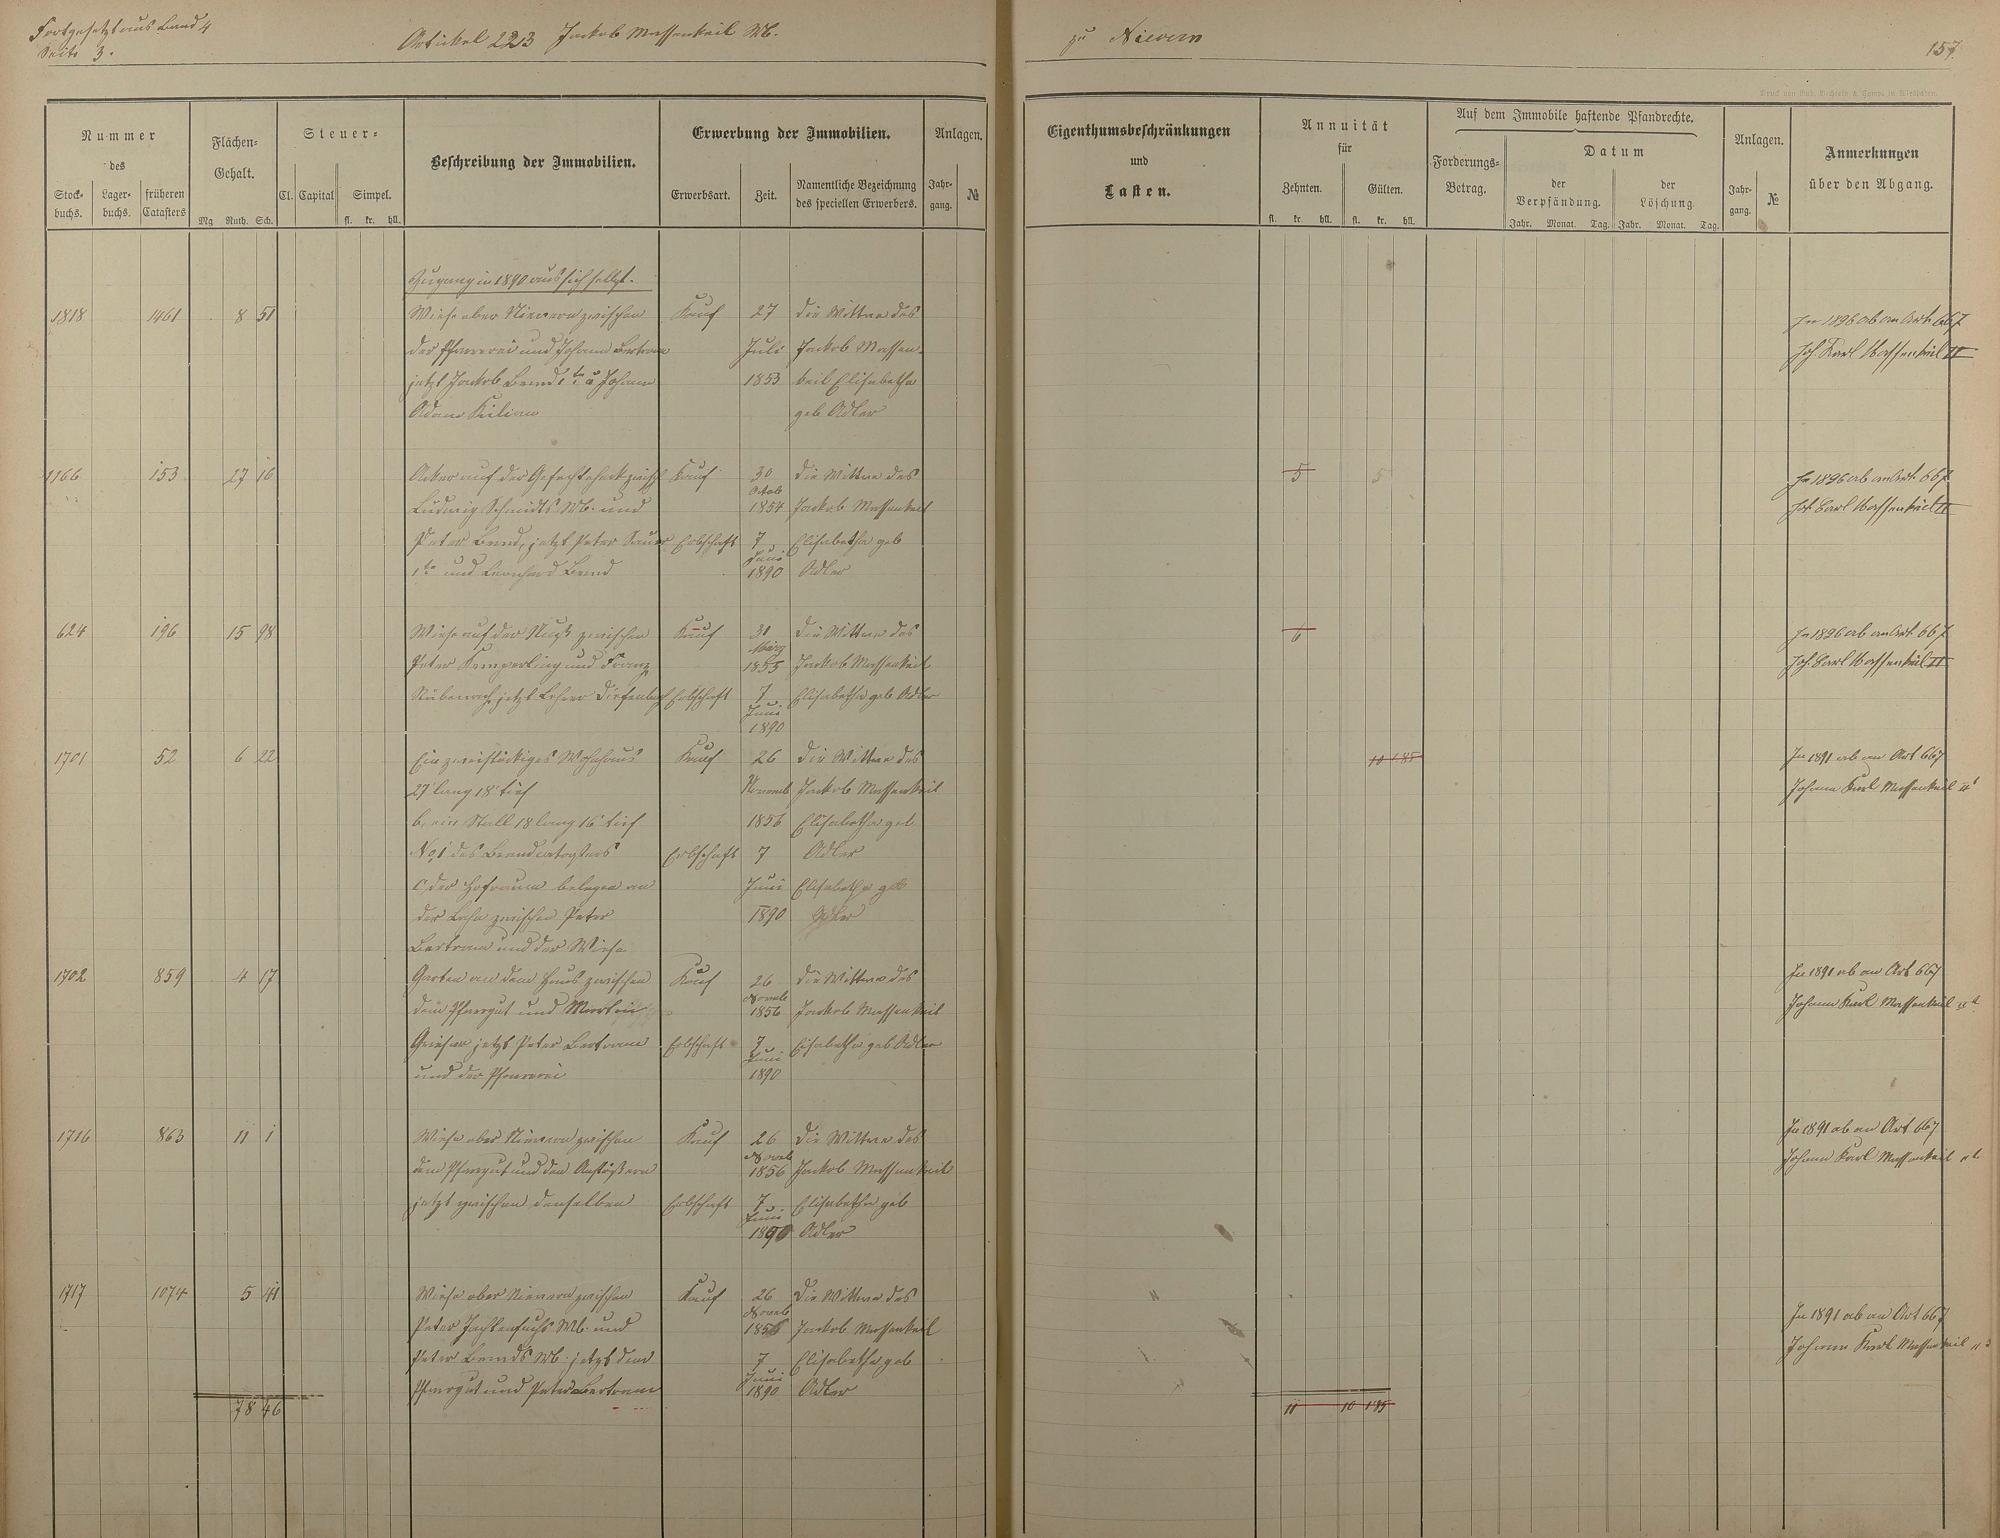 Fortgesetzt aus Band 4
Seite 3.
Artikel 223 Jackob Massenkeil Wb.
zu Nievern
157.
Nummer
des
Stock-
buchs.
Lager-
buchs.
früheren
Catasters
Flächen-
Gehalt.
Mg Ruth. Sch.
Steuer-
Cl. Capital Simpel.
fl. kr. hll.
Beschreibung der Immobilien.
Erwerbung der Immobilien.
Erwerbsart. Zeit.
Namentliche Bezeichnung
des speciellen Erwerbers.
Anlagen.
Jahr-
gang. №
Eigenthumsbeschränkungen
und
Lasten.
Annuität
für
Zehnten. Gülten.
fl. kr. hll. fl. kr. hll.
Auf dem Immobile haftende Pfandrechte.
Forderungs-
Betrag.
Datum
der
Verpfändung.
der
Löschung
Jahr. Monat. Tag. Jahr. Monat. Tag.
Anlagen.
Jahr-
gang. №
Anmerkungen
über den Abgang.
Zugang in 1890 aus sich selbst.
1818 1461 8 51 Wiese ober Nievern zwischen Kauf 27 die Wittwe des
der Pfarrerei und Johann Bertram Juli Jackob Massen-
jetzt Jackob Brend 1te u Johann 1853 keil Elisabetha
Adam Kilian geb Adler
In 1896 ab an Art 667
Joh. Karl Massenkeil II
1166 153 27 16 Acker auf der Kauf 30 die Wittwe des 5 5
Octob
Ludwig Schmidts Wb. und 1854 Jackob Massenkeil
Peter Brend, jetzt Peter Sauer Erbschaft 7 Elisabetha geb
Juni
1te und Leonhard Brend 1890 Adler
In 1896 ab an Art 667
Joh Carl Massenkeil II
624 196 15 98 Wiese auf der zwischen Kauf 31 die Wittwe des 6
März
Peter Kemperling und Franz 1855 Jackob Massenkeil
jetzt Lehrer Diefenbach Erbschaft 7 Elisabetha geb Adler
Juni
1890
In 1896 ab an Art 667
Joh. Carl Massenkeil II
1701 52 6 22 Ein zweistöckiges Wohnhaus Kauf 26 die Wittwe des
27' lang 18' tief Novemb Jackob Massenkeil
b, ein Stall 18 lang 16' tief 1856 Elisabetha geb
No 1 des Brandcatasters Erbschaft 7 Adler
c, der Hofraum belegen an Juni Elisabetha geb
der Lahn zwischen Peter 1890 Adler
Bertram und der Wiese
In 1891 ab an Art 667
Johann Karl Massenkeil IIt
1702 859 4 17 Garten an dem Haus zwischen Kauf 26 die Wittwe des
Novemb
dem Pfarrgut und Martin 1856 Jackob Massenkeil
jetzt Peter Bertram Erbschaft 7 Elisabetha geb Adler
Juni
und der Pfarrerei 1890
In 1891 ab an Art 667
Johann Karl Massenkeil IIt
1716 863 11 1 Wiese ober Nievern zwischen Kauf 26 die Wittwe des
Novemb
dem Pfarrgut und den Anstößern 1856 Jackob Massenkeil
jetzt zwischen denselben Erbschaft 7 Elisabetha geb
Juni
1890 Adler
In 1891 ab an Art 667
Johann Karl Massenkeil IIt
1717 1074 5 41 Wiese ober Nievern zwischen Kauf 26 die Wittwe des
Novemb
Peter Wb. und 1856 Jackob Massenkeil
Peter Brends Wb. jetzt dem 7 Elisabetha geb
Juni
Pfarrgut und Peter Bertram 1890 Adler
In 1891 ab an Art 667
Johann Karl Massenkeil
78 46
11 10 1 85